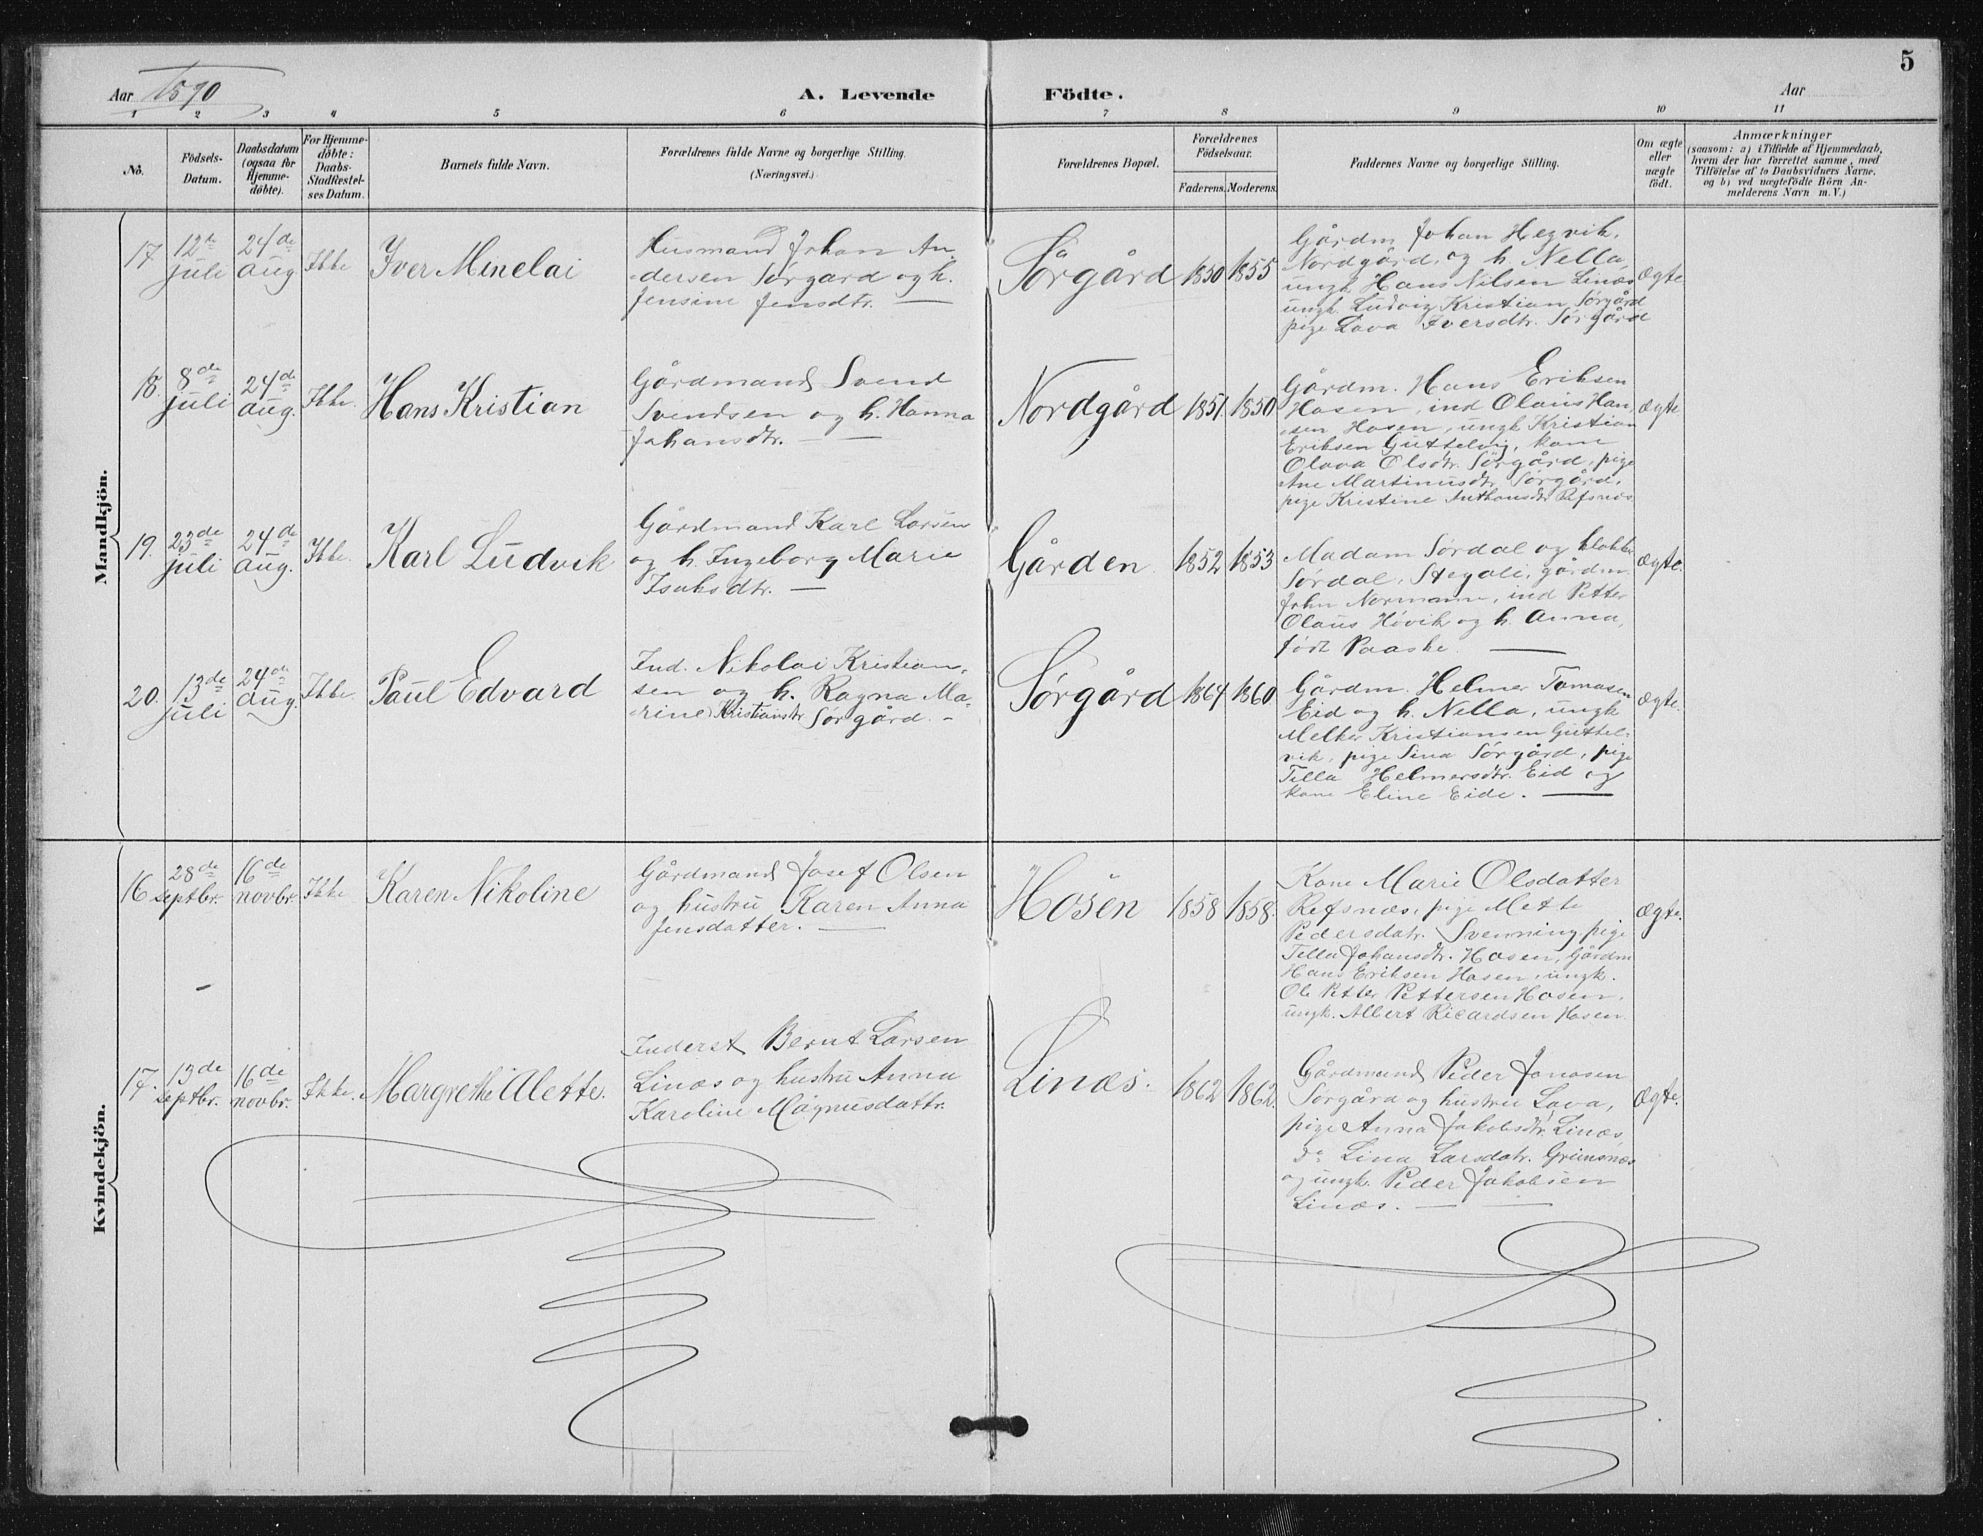 5
Aar 1890
A. Levende
Födte.
Aar
1 2 3 4 5 6 7 8 9 10 11
No.
Födsels-
Datum.
Daabsdatum
(ogsaa for
Hjemme-
döbte).
For Hjemme-
döbte:
Daabs-
Stadfestel-
ses Datum.
Barnets fulde Navn.
Forældrenes fulde Navne og borgerlige Stilling.
(Næringsvei.)
Forældrenes Bopæl.
Forældrenes
Födselsaar.
Faderens. Moderens.
Faddernes Navne og borgerlige Stilling.
Om ægte
eller
uægte
födt.
Anmærkninger
(saasom: a) i Tilfælde af Hjemmedaab,
hvem der har forrettet samme, med
Tilföielse af to Daabsvidners Navne,
og b) ved uægtefödte Börn An-
melderens Navn m. V.)
Mandkjön.
17
12te
juli
24de
aug
Ikke
Iver Minelai
Husmand Johan An-
dersen Sørgård og h.
Jensine Jensdtr.
Sørgård
1850
1855
Gårdm Johan Hegvik,
Nordgård, og h. Nella,
ungk Hans Nilsen Linæs
ungk Ludvig Kristian Sørgård
pige Lava Iversdtr. Sørgård
ægte
18.
8de
juli
24de
aug.
Ikke.
Hans Kristian
Gårdmand Svend
Svendsen og h. Hanna
Johansdtr.
Nordgård
1851.
1850
Gårdm. Hans Eriksen
Hosen, ind Olaus Han-
sen Hosen, ungk Kristian
Eriksen Guttelvig, kone
Olava Olsdtr. Sørgård, pige
Ane Martinusdtr Sørgård,
pige Kristine Anthonsdtr Refsnæs
ægte
19.
23de
juli
24de
aug.
Ikke.
Karl Ludvik
Gårdmand Karl Larsen
og h. Ingeborg Marie
Isaksdtr.
Gården
1852
1853
Madam Sørdal og klokker
Sørdal, Stegali, gårdm.
John Normann, ind Petter
Olaus Høvik og h. Anna,
født Paaske.
ægte.
20.
13de
juli
24de
aug.
Ikke.
Paul Edvard
Ind. Nikolai Kristian-
sen og h. Ragna Ma-
rine Kristiansdtr Sørgård.
Sørgård
1864
1860
Gårdm. Helmer Tomasen
Eid og h. Nella, ungk
Melker Kristiansen Guttel-
vik, pige Sina Sørgård, pige
Tella Helmersdtr. Eid og
kone Eline Eide.
ægte.
Kvindekjön.
16
28de
septbr.
16de
novbr.
Ikke
Karen Nikoline
Gårdmand Josef Olsen
og hustru Karen Anna
Jensdatter.
Hosen
1858
1858.
Kone Marie Olsdatter
Refsnæs, pige Mette
Pedersdatr. Svenning pige
Tella Johansdtr. Hosen, Gårdm
Hans Eriksen Hosen, ungk.
Ole Petter Pettersen Hosen,
ungk. Albert Ricardsen Hosen.
ægte.
17.
13de
septbr.
16de
novbr.
Ikke.
Margrethe Alette.
Inderst Bernt Larsen
Linæs og hustru Anna
Karoline Magnusdattr.
Linæs.
1862
1862.
Gårdmand Peder Jonasen
Sørgård og hustru Lava,
pige Anna Jakobsdtr. Linæs,
do Lina Larsdatr. Grimsnæs
og ungk. Peder Jakobsen
Linæs.
ægte.